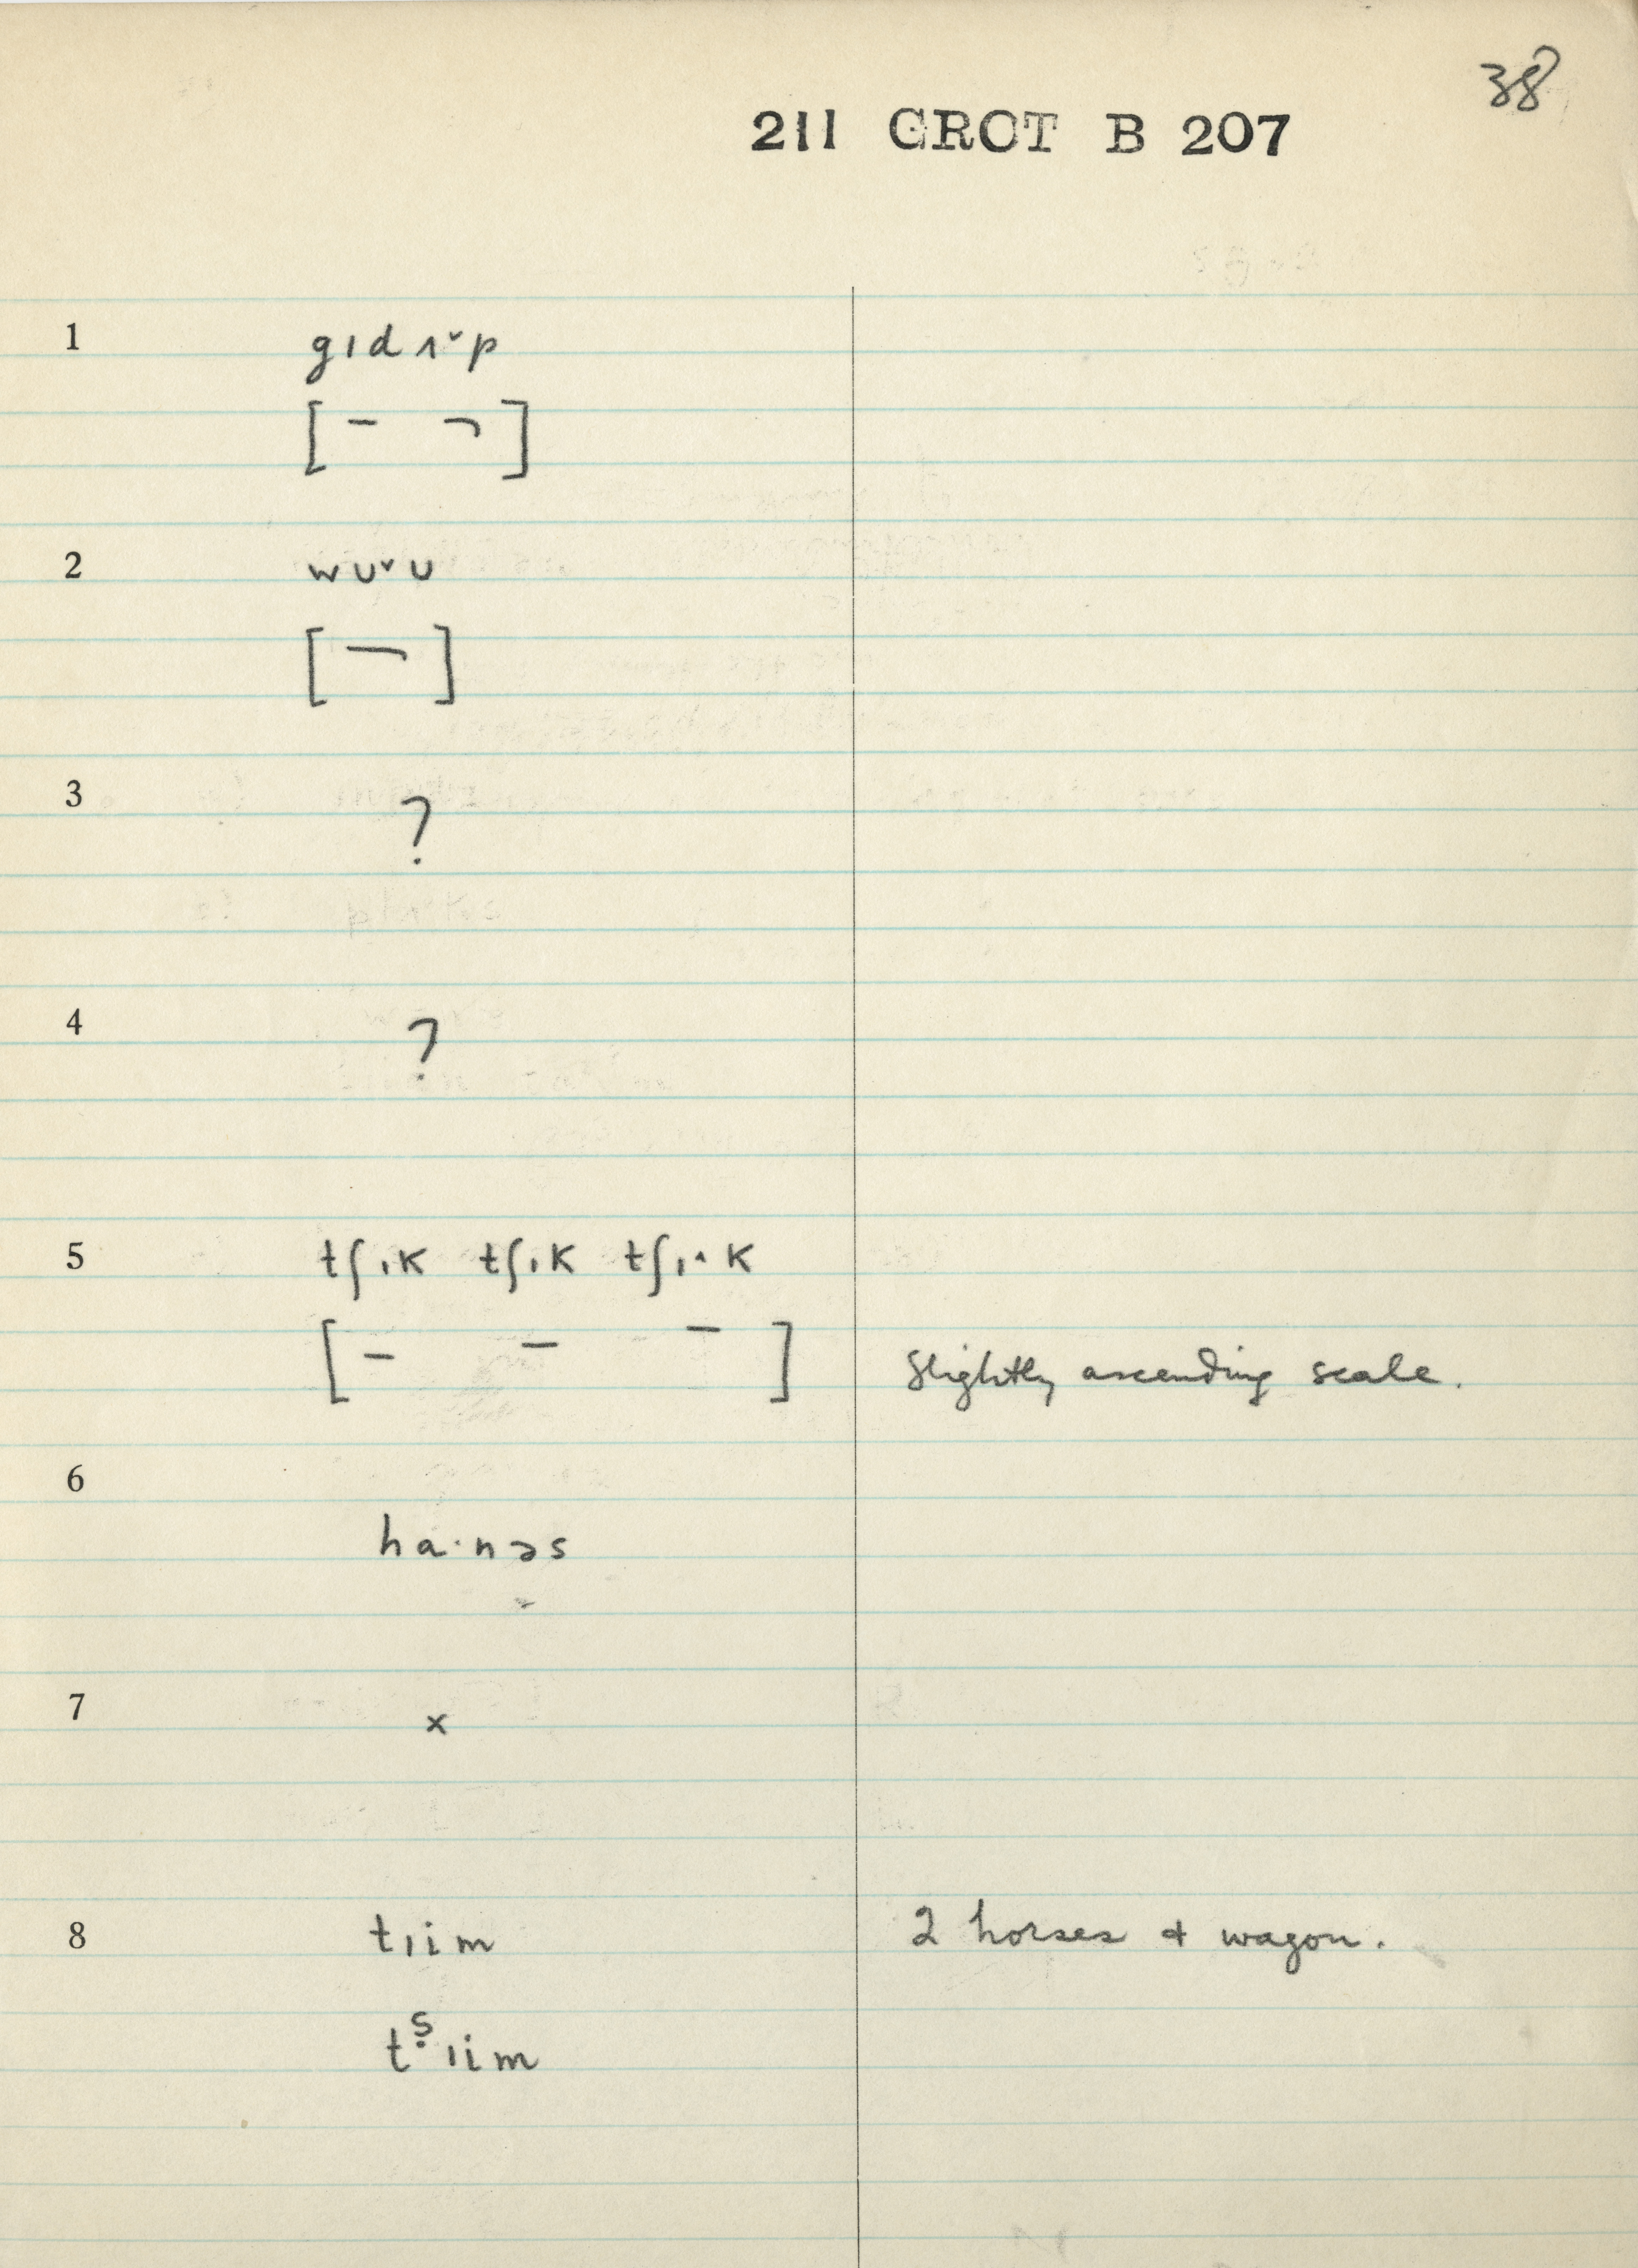 38
211 GROT B 207
1 gɪdʌ˅p
[ – ¬ ]
2 wʊ˅ʊ
[ ¬ ]
3 ?
4 ?
5 tʃɪk tʃɪk tʃɪ˄k
[ – – – ] Slightly ascending scale.
6
ha·nəs
7 ×
8 tɪim 2 horses & wagon.
tṣɪim